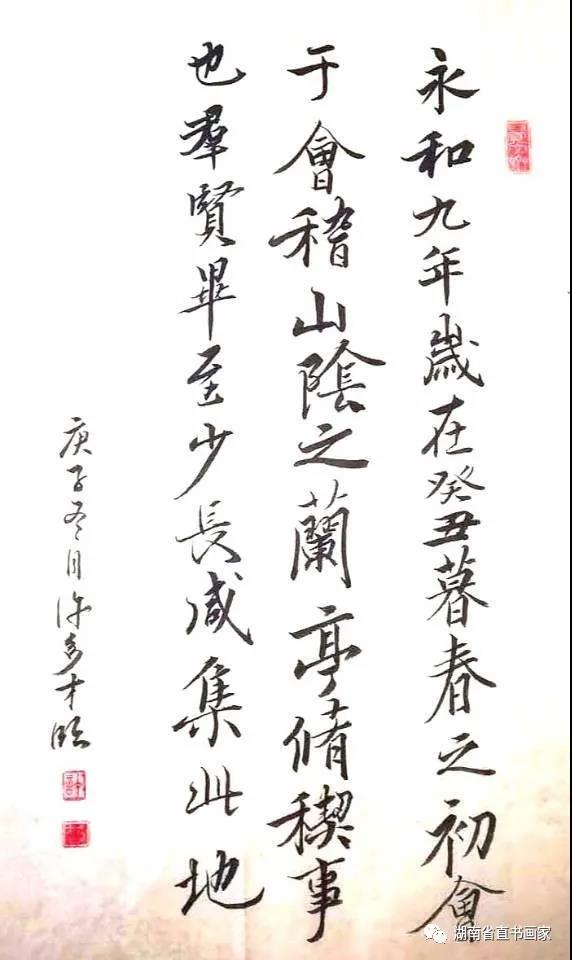 永和九年歲在癸丑暮春之初會
于會稽山陰之蘭亭脩稧事
也羣賢畢至少長咸集此地
庚子冬月許多才臨
湖南省直书画家